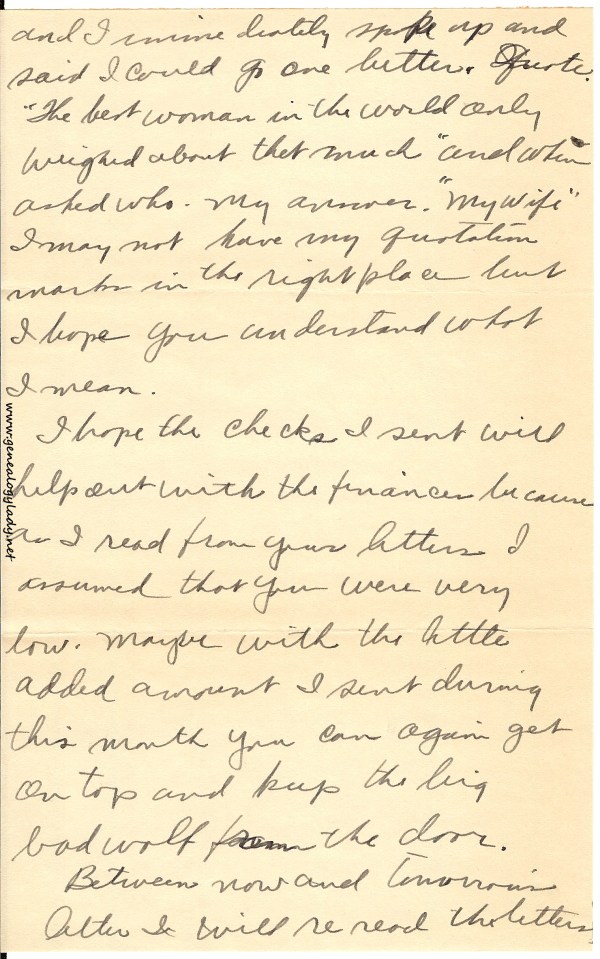 and I imme diately spoke up and
said I could go one better. Quote.
"The best woman in the world only
weighed about that much" and when
asked who - my answer. "My Wife"
I may not have my quotation
marks in the right place but
I hope you understand what
I mean.
I hope the checks I sent will
help out with the finances because
as I read from your letters I
assumed that you were very
low. Maybe with the little
added amount I sent during
this month you can again get
on top and keep the big
bad wolf from the door.
Between now and tomorrow's
letter I will re read the letters
www.genealogylady.net